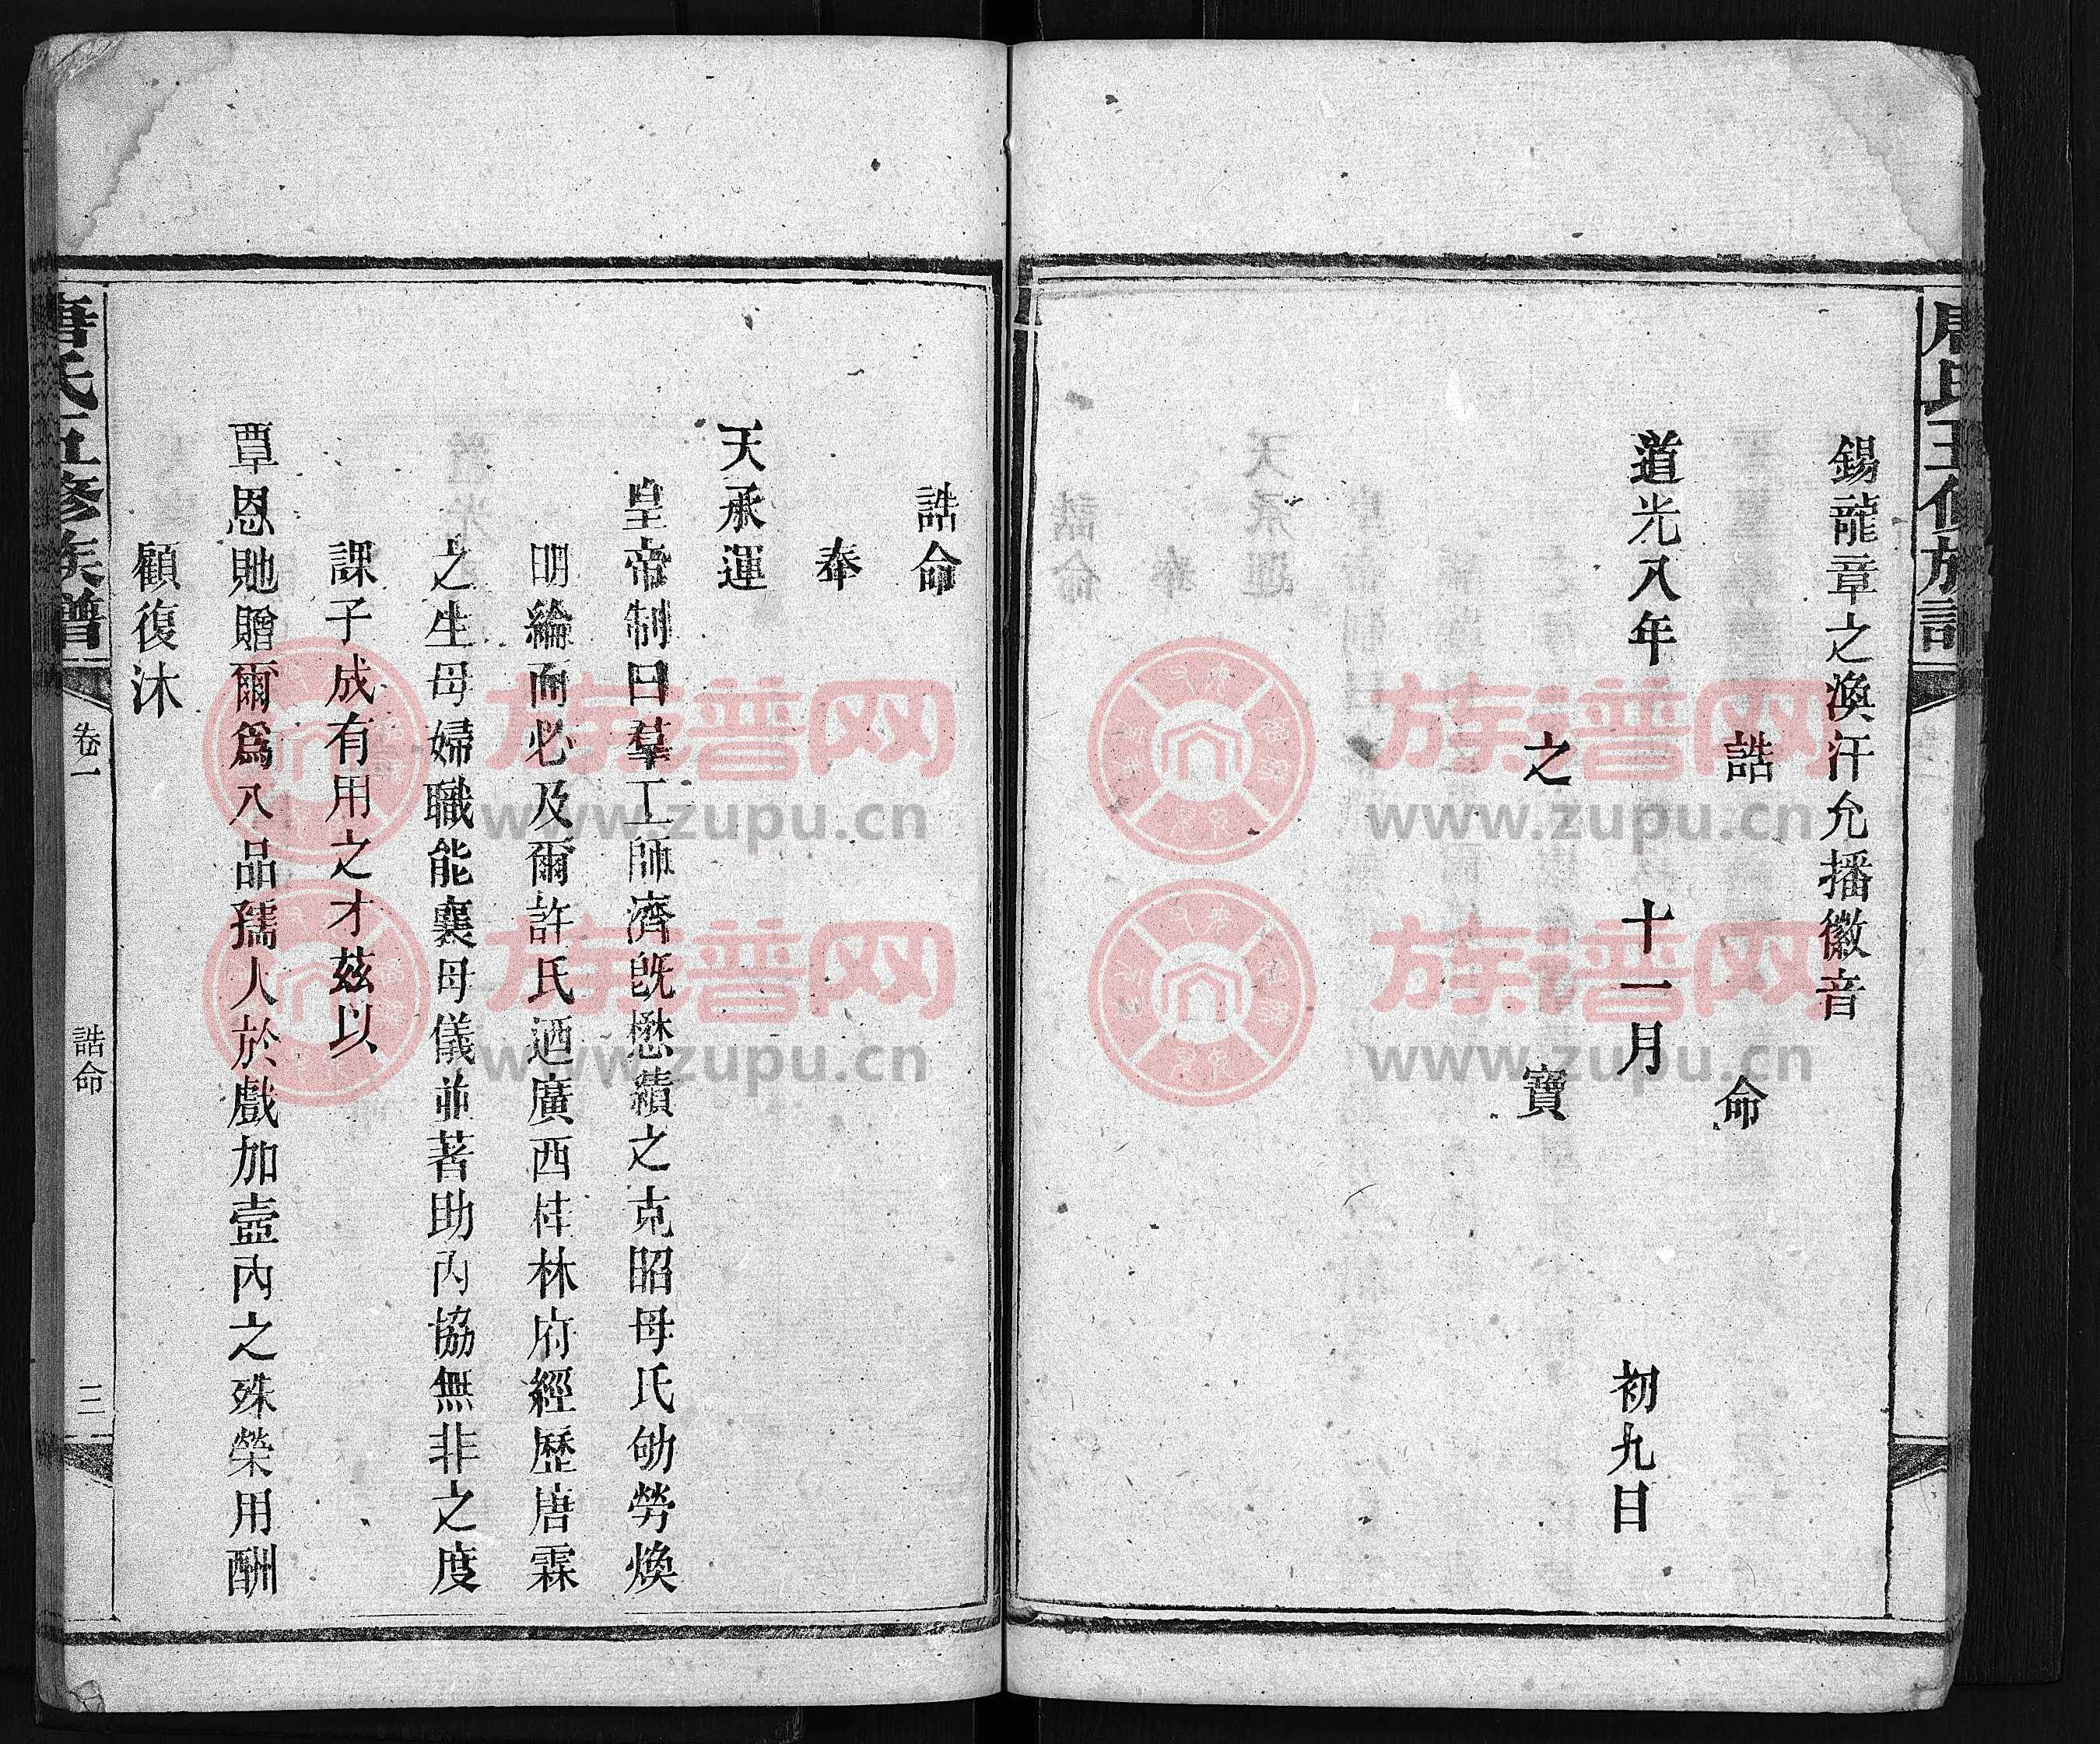 唐氏五修族譜
錫龍章之渙汗允播徽音
誥命
道光八年十一月初九日
之寶
誥命
奉
天承運
皇帝制曰羣工師濟旣懋績之克昭母氏劬勞煥
明綸而必及爾許氏廼廣西桂林府經歷唐霖
之生母婦職能襄母儀並著助內協無非之度
課子成有用之才茲以
覃恩貤贈爾爲八品孺人於戲加壼內之殊榮用酬
顧復沐
唐氏五修族譜
卷一
誥命
三
族譜网
www.zupu.cn
族譜网
www.zupu.cn
族譜网
www.zupu.cn
族譜网
www.zupu.cn